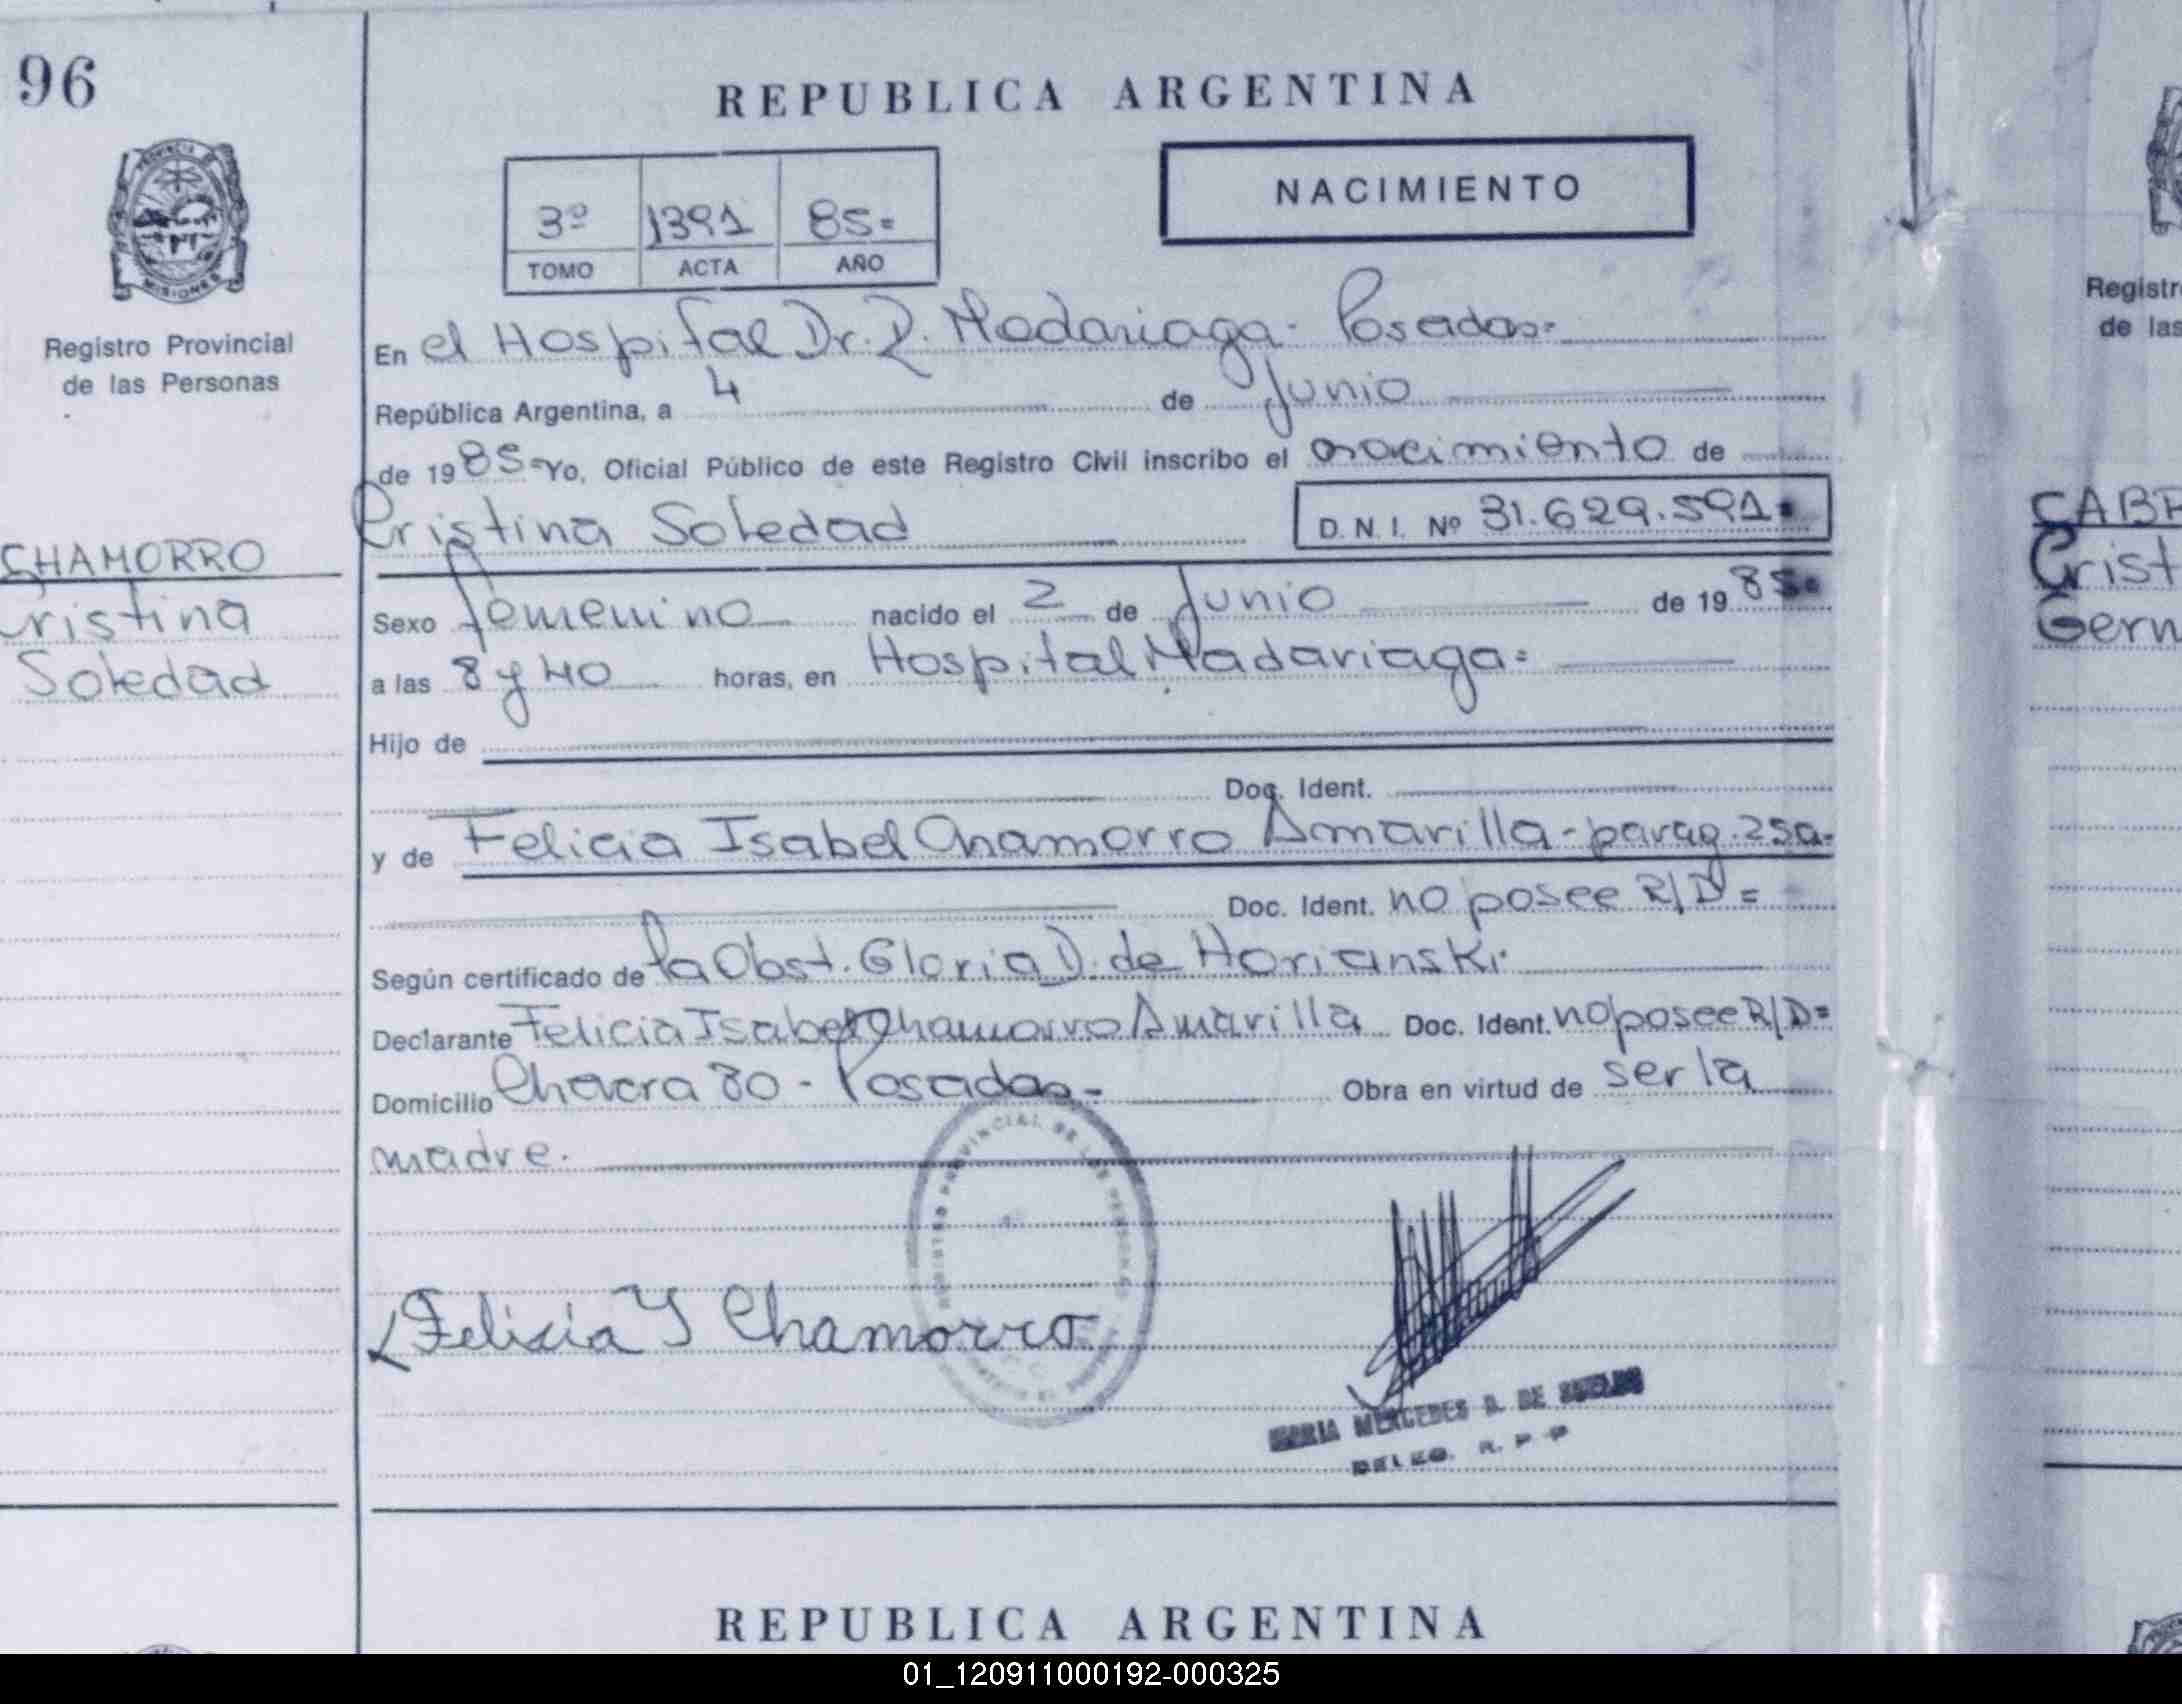 96
REPUBLICA ARGENTINA
NACIMIENTO
3º 1391 85=
TOMO ACTA AÑO
PROVINCIA DE
MISIONES
Registro Provincial
de las Personas
En el Hospital Dr. R. Madariaga- Posadas=
República Argentina, a 4 de Junio
de 1985= Yo, Oficial Público de este Registro Civil inscribo el nacimiento de
Cristina Soledad D. N. I. Nº 31.629.591=
CHAMORRO
Cristina
Soledad
Sexo femenino nacido el 2 de Junio de 1985=
a las 8 y 40 horas, en Hospital Madariaga=
Hijo de
Doc. Ident.
y de Felicia Isabel Chamorro Amarilla-parag.25a-
Doc. Ident. no posee R/D=
Según certificado de la Obst. Gloria D. de Horianski.
Declarante Felicia Isabel Chamorro Amarilla Doc. Ident. no posee R/D=
Domicilio Chacra 80 - Posadas- Obra en virtud de ser la
madre.
REGISTRO PROVINCIAL DE LAS PERSONAS
Felicia Y Chamorro
MARIA MERCEDES D. DE
DELEG. R. P. P.
REPUBLICA ARGENTINA
Registr
de las
CABR
Crist
Germ
01_120911000192-000325